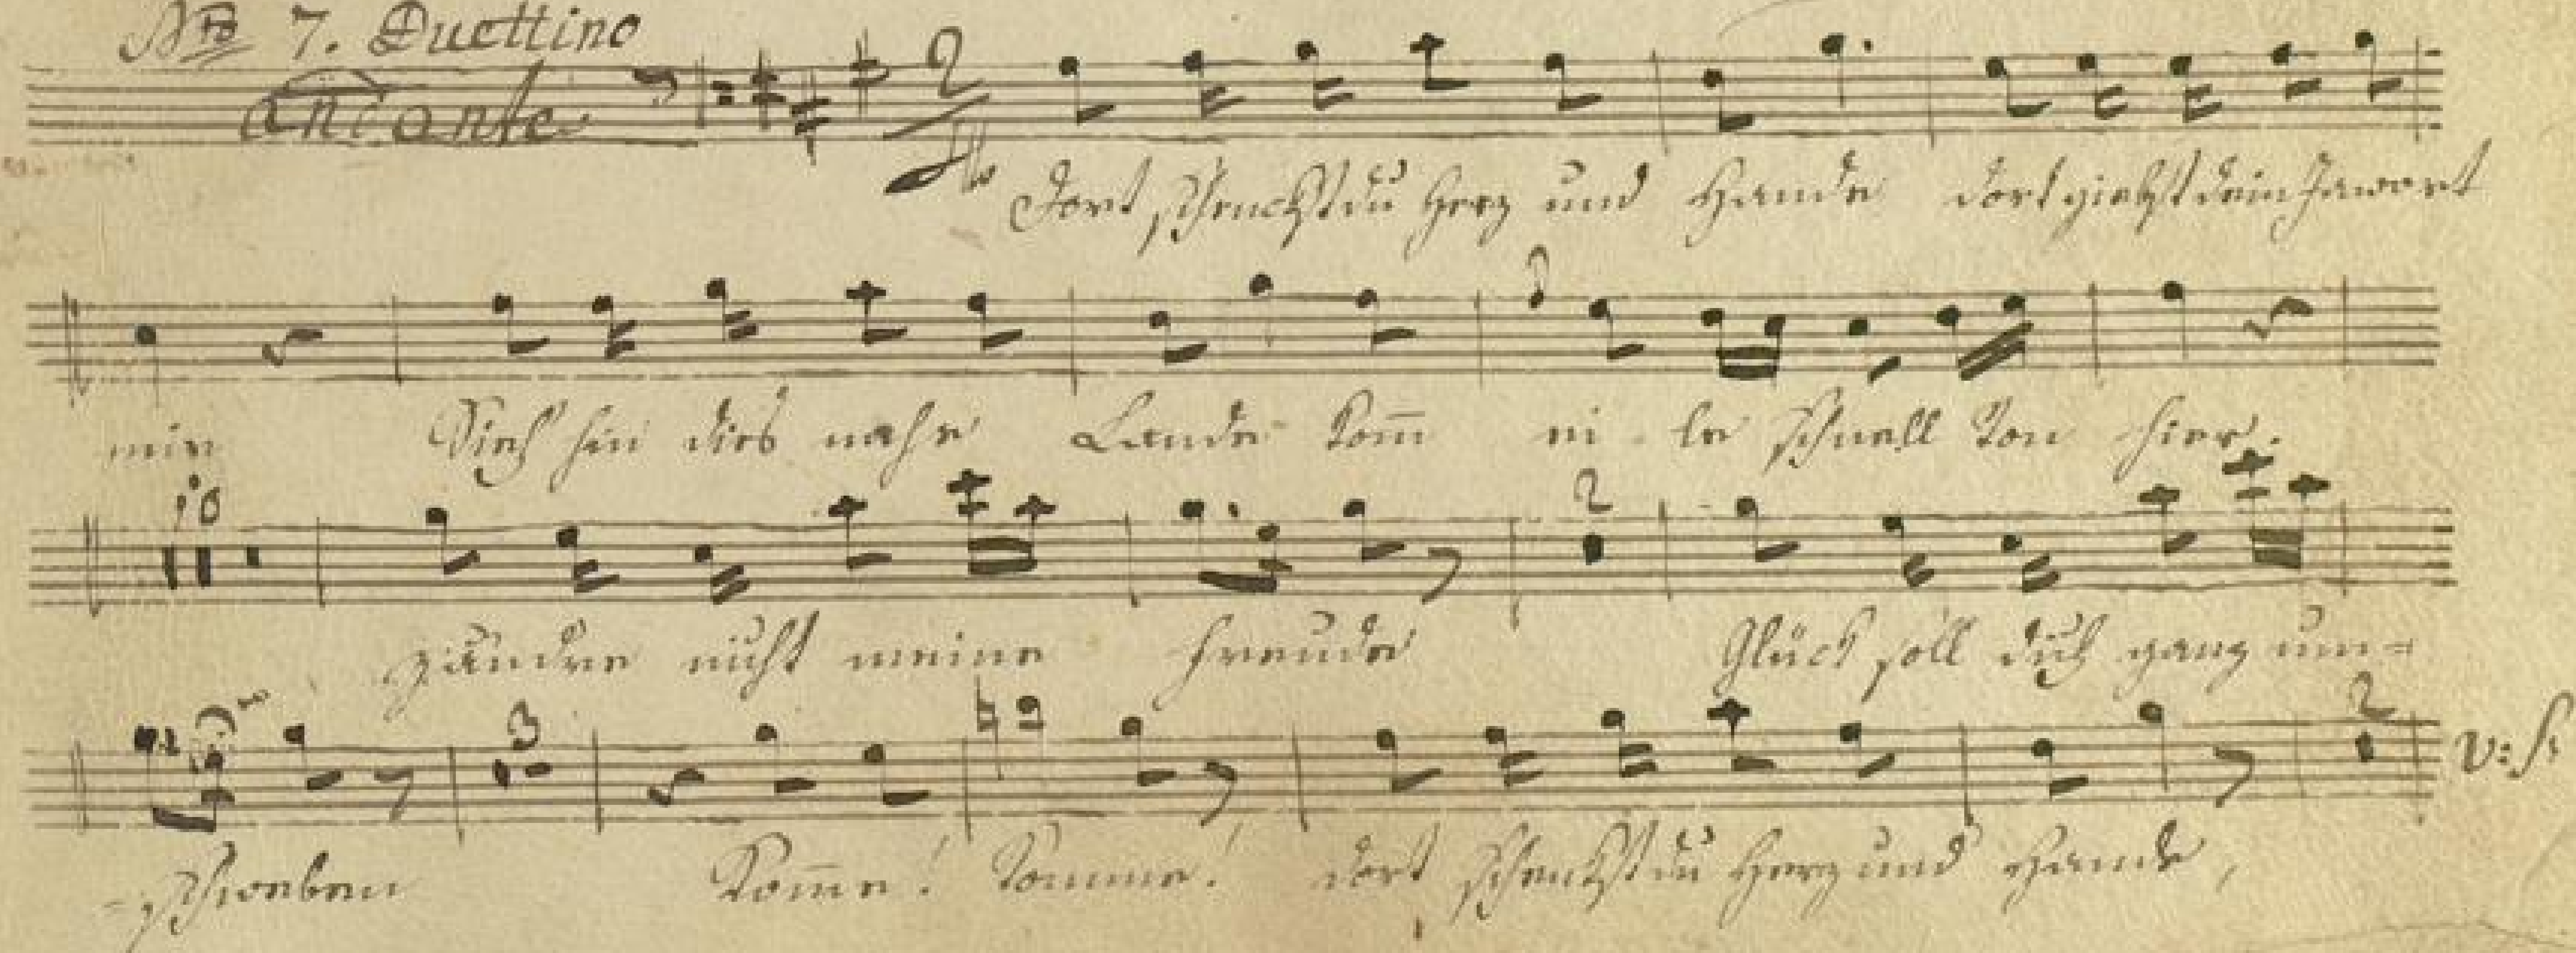 Nro 7. Duettino
andante
2
4
Dort schenckst du Herz und Hande dort giebst dein Jawort
mir Sieh' hin dies nahe Lande kom̅ ei - le schnell von hier.
10 2
zaudre nicht meine Freude Glück soll dich ganz um=
3 2
=schweben Kom̅e! komme! dort schenkst du Herz und Hande,
v: s: